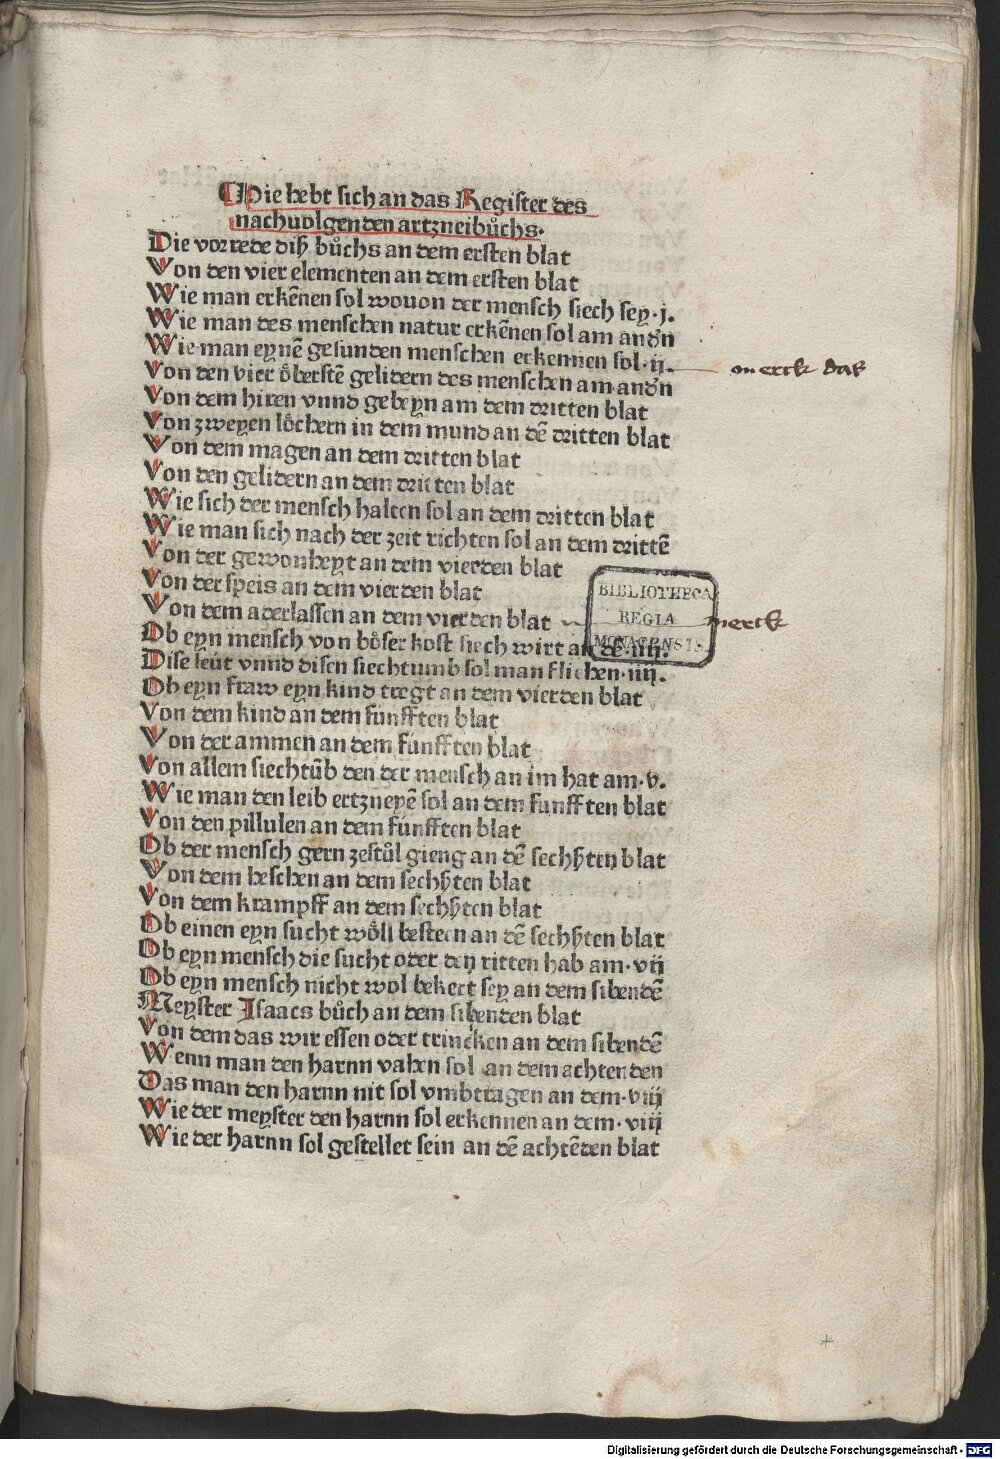 Hie hebt sich an das Register des
nachuolgenden artzneibůchs.
Die vorrede diß bůchs an dem ersten blat
Von den vier elementen an dem ersten blat
Wie man erkēnen sol wouon der mensch siech sey.j.
Wie man des menschen natur erkēnen sol am andn̄
Wie man eynē gesunden menschen erkennen sol.ij.
merck das
Von den vier oͤberstē gelidern des menschen am andn̄
Von dem hiren vnnd gebeyn am dem dritten blat
Von zweyen loͤchern in dem mund an dē dritten blat
Von dem magen an dem dritten blat
Von den gelidern an dem dritten blat
Wie sich der mensch halten sol an dem dritten blat
Wie man sich nach der zeit richten sol an dem drittē
Von der gewonheyt an dem vierden blat
Von der speis an dem vierden blat
Von dem aderlassen an dem vierden blat
merck
BIBLIOTHECA
REGIA
MONACENSIS.
Ob eyn mensch von boͤser kost siech wirt an dē.iiij.
Dise leüt vnnd disen siechtumb sol man fliehen.iiij.
Ob eyn fraw eyn kind tregt an dem vierden blat
Von dem kind an dem fünfften blat
Von der ammen an dem fünfften blat
Von allem siechtūb den der mensch an im hat am.v.
Wie man den leib ertzneyē sol an dem funfften blat
Von den pillulen an dem fünfften blat
Ob der mensch gern zestůl gieng an dē sechßten blat
Von dem heschen an dem sechßten blat
Von dem krampff an dem sechßten blat
Ob einen eyn sucht woͤll besteen an dē sechßten blat
Ob eyn mensch die sucht oder den ritten hab am.vij
Ob eyn mensch nicht wol bekert sey an dem sibendē
Meyster Isaacs bůch an dem sibenden blat
Von dem das wir essen oder trincken an dem sibendē
Wenn man den harnn vahen sol an dem achtenden
Das man den harnn nit sol vmbtragen an dem.viij
Wie der meyster den harnn sol erkennen an dem.viij
Wie der harnn sol gestellet sein an dē achtēden blat
Digitalisierung gefördert durch die Deutsche Forschungsgemeinschaft - DFG